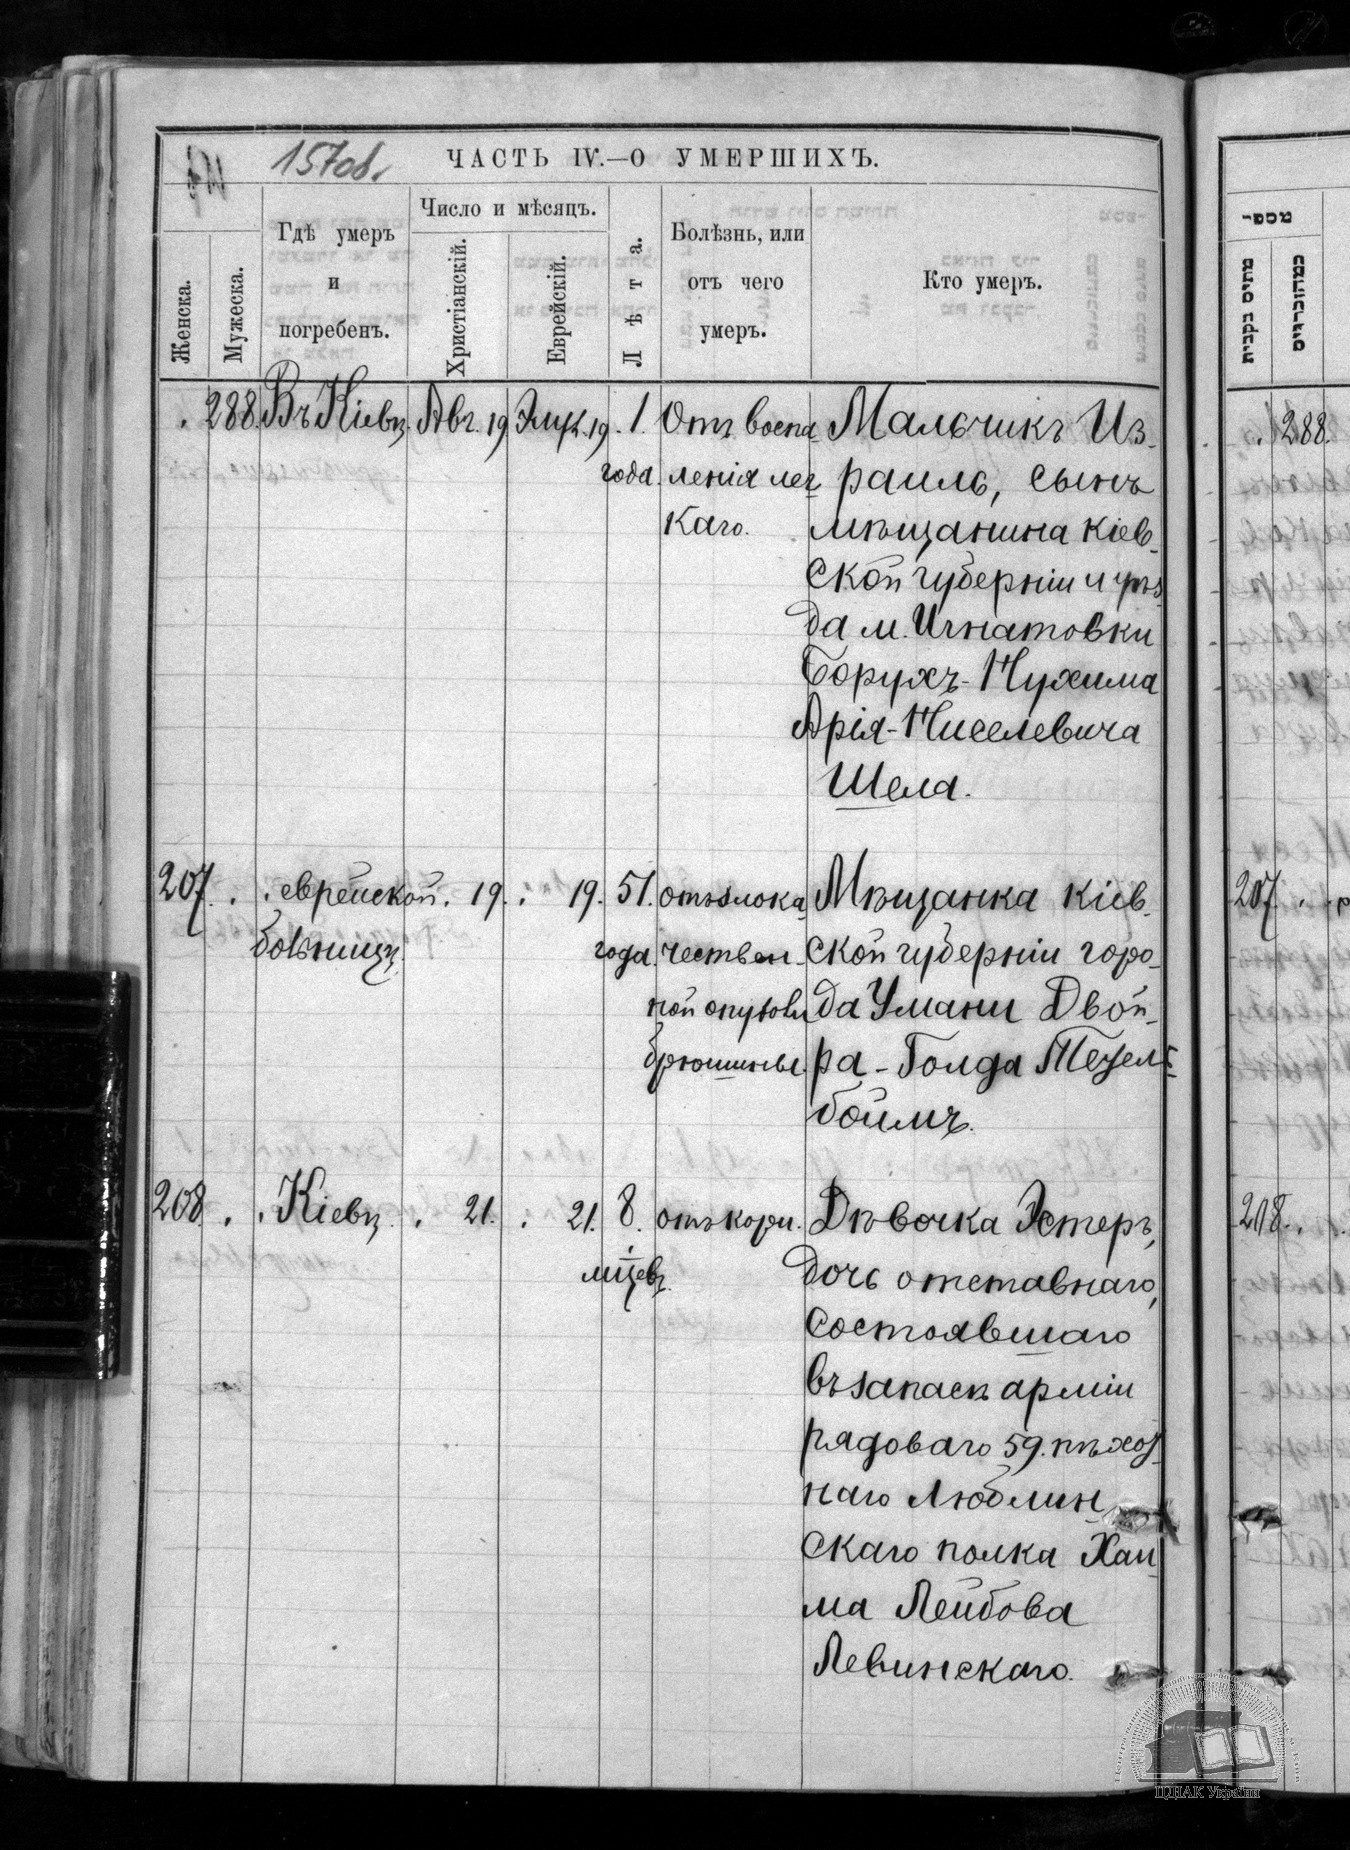 157об.
ЧАСТЬ IV.—О УМЕРШИХЪ.
Женска.
Мужеска.
Гдѣ умеръ
и
погребенъ.
Число и мѣсяцъ.
Христіанскій.
Еврейскій.
Лѣта.
Болѣзнь, или
отъ чего
умеръ.
Кто умеръ.
288. Въ Кіевѣ. Авг. 19 Элул. 19. 1. Отъ воспа Мальчикъ Из-
года. ленія лег раиль, сынъ
каго. мѣщанина Кіев-
ской губерніи и уѣз
да м. Игнатовки
Борухъ-Нухима
Арія-Ниселевича
Шела.
207. еврейской. 19. 19. 51. отъ злока Мѣщанка Кіев-
больницѣ. года. чествен- ской губерніи горо-
ной опухоли да Умани Двой-
брюшины. ра-Голда Тезель-
боймъ.
208. Кіевѣ. 21. 21. 8. отъ кори. Дѣвочка Эстеръ,
мцевъ. дочь отставнаго,
состоявшаго
въ запасѣ арміи
рядоваго 59. пѣхот
наго Люблин-
скаго полка Хаи
ма Лейбова
Левинскаго.
288.
207.
208.
ЦДІАК України